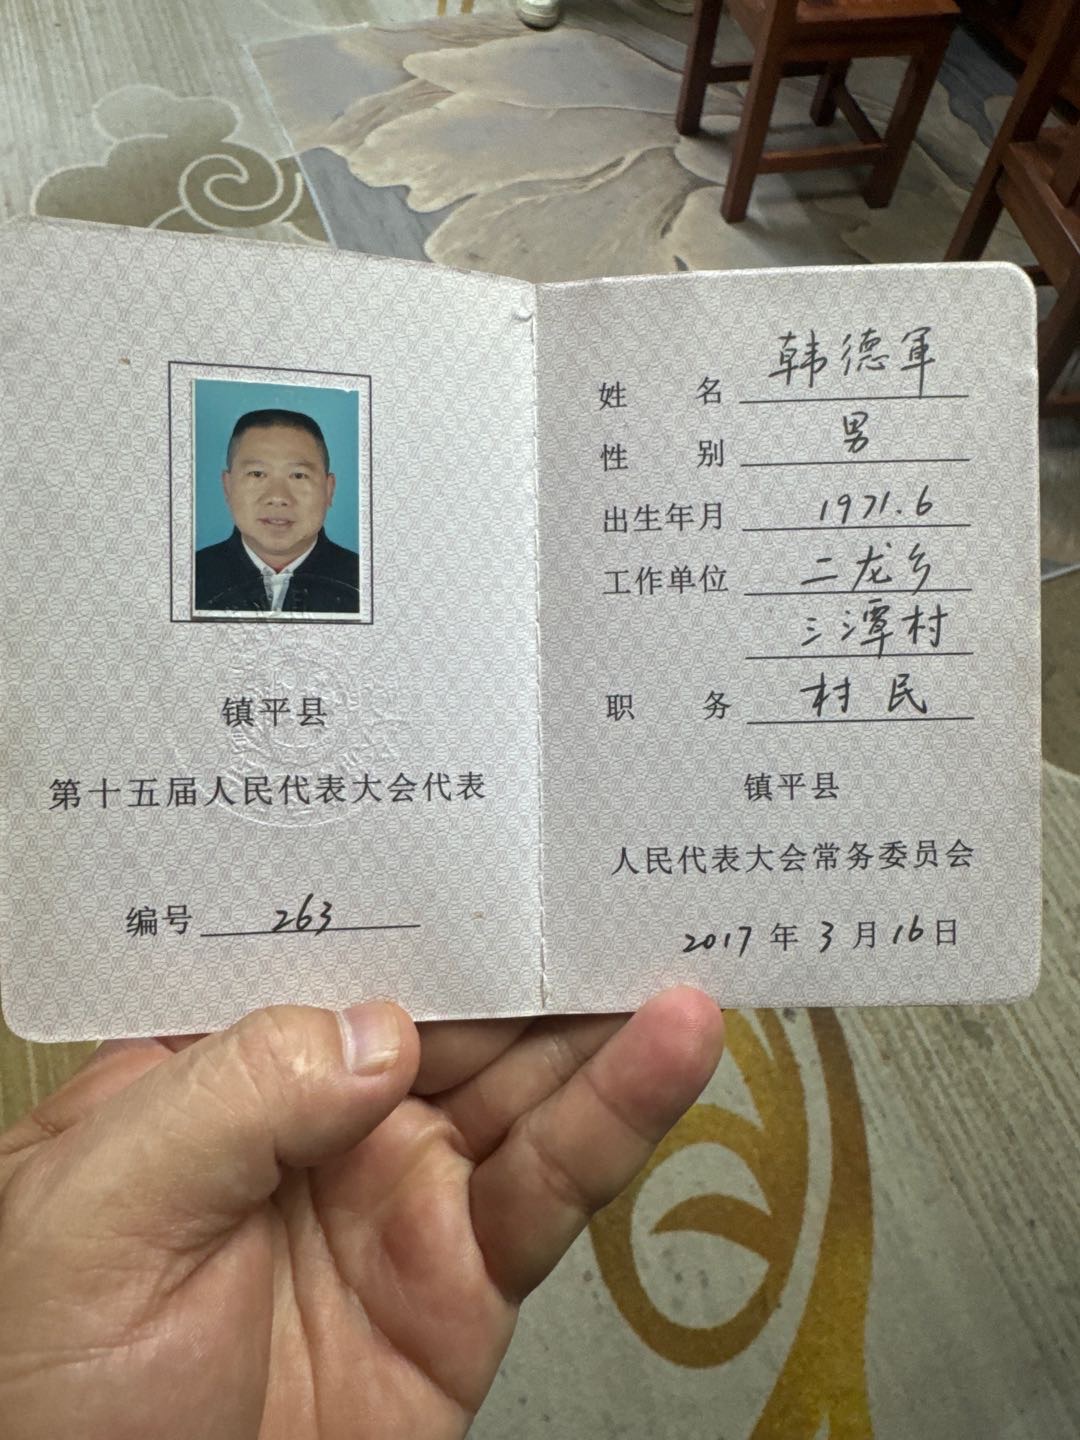 镇平县
第十五届人民代表大会代表
编号 263
姓名 韩德军
性别 男
出生年月 1971.6
工作单位 二龙乡
三潭村
职务 村民
镇平县
人民代表大会常务委员会
2017年3月16日